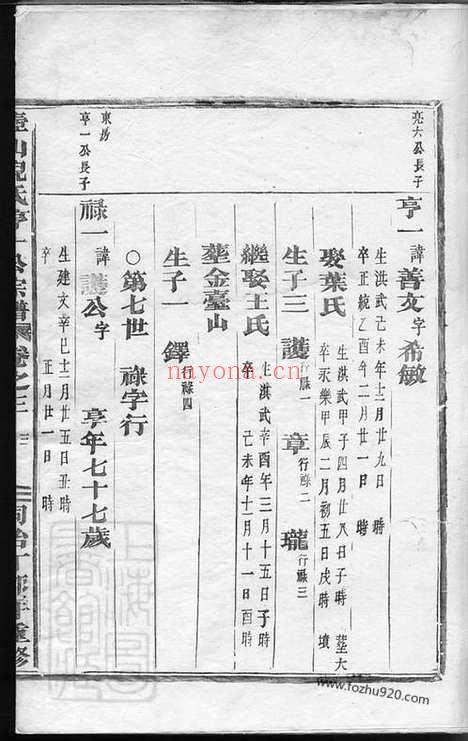 亮六公長子
亨一諱善文字希敏
生洪武己未年十二月廿九日 時
卒正統乙酉年二月廿一日 時
娶葉氏
生洪武甲子四月廿八日子時 塟大
卒永樂甲辰二月初五日戌時 墳
生子三 護行祿一 章行祿二 瓏行祿三
繼娶王氏
生洪武辛酉年三月十五日子時
卒 己未年十二月十一日酉時
塟金臺山
生子一 鐸行祿四
○第七世 祿字行
東房
亨一公長子
祿一諱護公字 享年七十七歲
生建文辛巳十二月廿五日丑時
卒 正月廿一日 時
亨一公宗譜 卷之三 三 同治十 年重修
nayona.cn
www.fozhu920.com